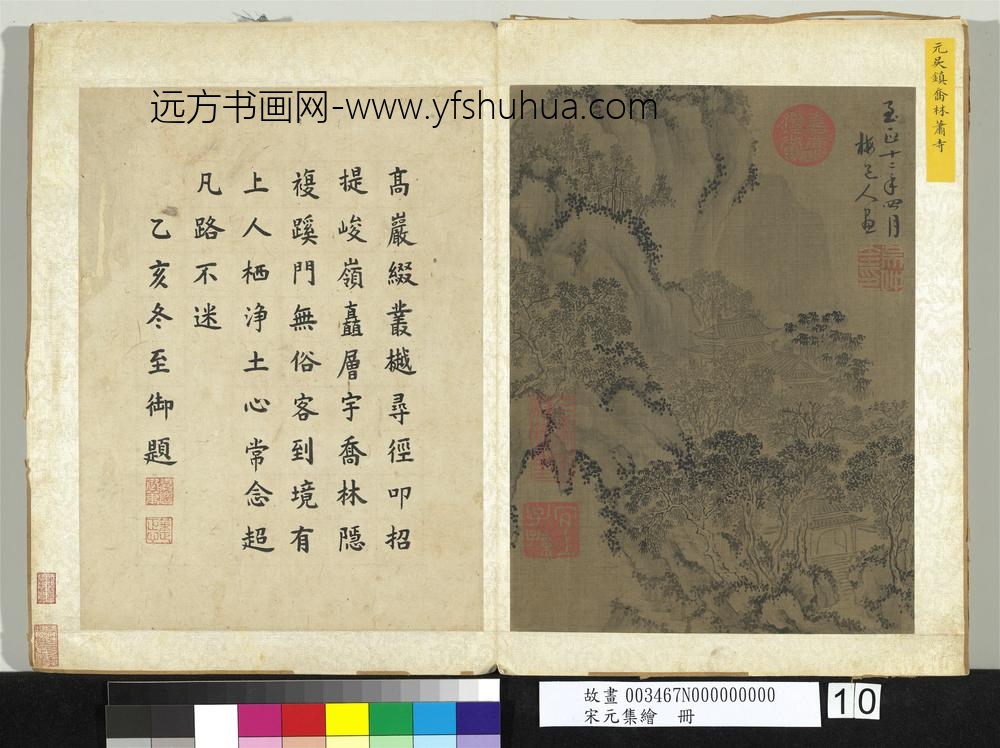 远方书画网-www.yfshuhua.com
元吴鎮喬林蕭寺
至正十二年四月
梅道人畫
髙巖綴叢樾尋徑叩招
提峻嶺矗層宇喬林隱
複蹊門無俗客到境有
上人栖浄土心常念超
凡路不迷
乙亥冬至御題
故畫 003467N000000000
宋元集繪 冊
10